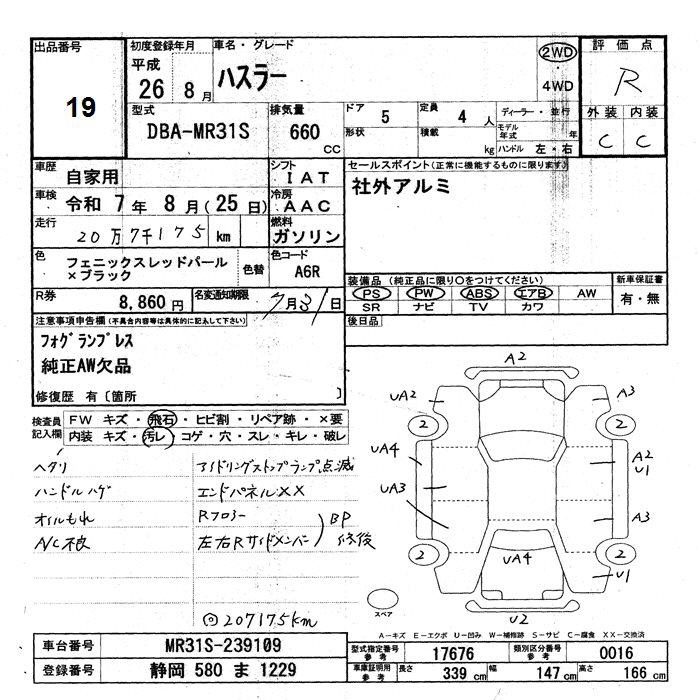 出品番号
19
初度登録年月
平成
26 8月
車名・グレード
ハスラー
2WD
・
4WD
評価点
R
外装 内装
C C
型式
DBA-MR31S
排気量
660
CC
ドア 5
形状
定員 4 人
積載 kg
ディーラー・並行
モデル年式 年
ハンドル 左・右
車歴
自家用
シフト
IAT
車検 令和 7年 8月(25日)
冷房
AAC
走行
20万7千175 km
燃料
ガソリン
セールスポイント(正常に機能するものに限ります)
社外アルミ
色
フェニックスレッドパール
×ブラック
色替
色コード
A6R
R券 8,860円
名変通知期限 7月31日
装備品(純正品に限り○をつけてください)
PS PW ABS エアB AW
SR ナビ TV カワ
新車保証書
有・無
後日品
注意事項申告欄(不具合内容等は具体的に記入して下さい)
フォグランプレス
純正AW欠品
修復歴 有〔箇所 〕
検査員
記入欄
FW キズ・飛石・ヒビ割・リペア跡・×要
内装 キズ・汚レ・コゲ・穴・スレ・キレ・破レ
ヘタリ
ハンドルハゲ
オイルもれ
A/C不良
アイドリングストップランプ点滅
エンドパネルXX
Rフロアー
左右Rサイドメンバー
BP
修復
◎207175km
A2
UA2
A3
2
2
UA4
A2
U1
UA3
A3
2
2
UA4
U1
U2
スペア
A-キズ E-エクボ U-凹み W-補修跡 S-サビ C-腐食 XX-交換済
車台番号 MR31S-239109
登録番号 静岡 580 ま 1229
型式指定番号
参考
17676
類別区分番号
参考
0016
車庫証明用
参考
長さ 339 cm 幅 147 cm 高さ 166 cm